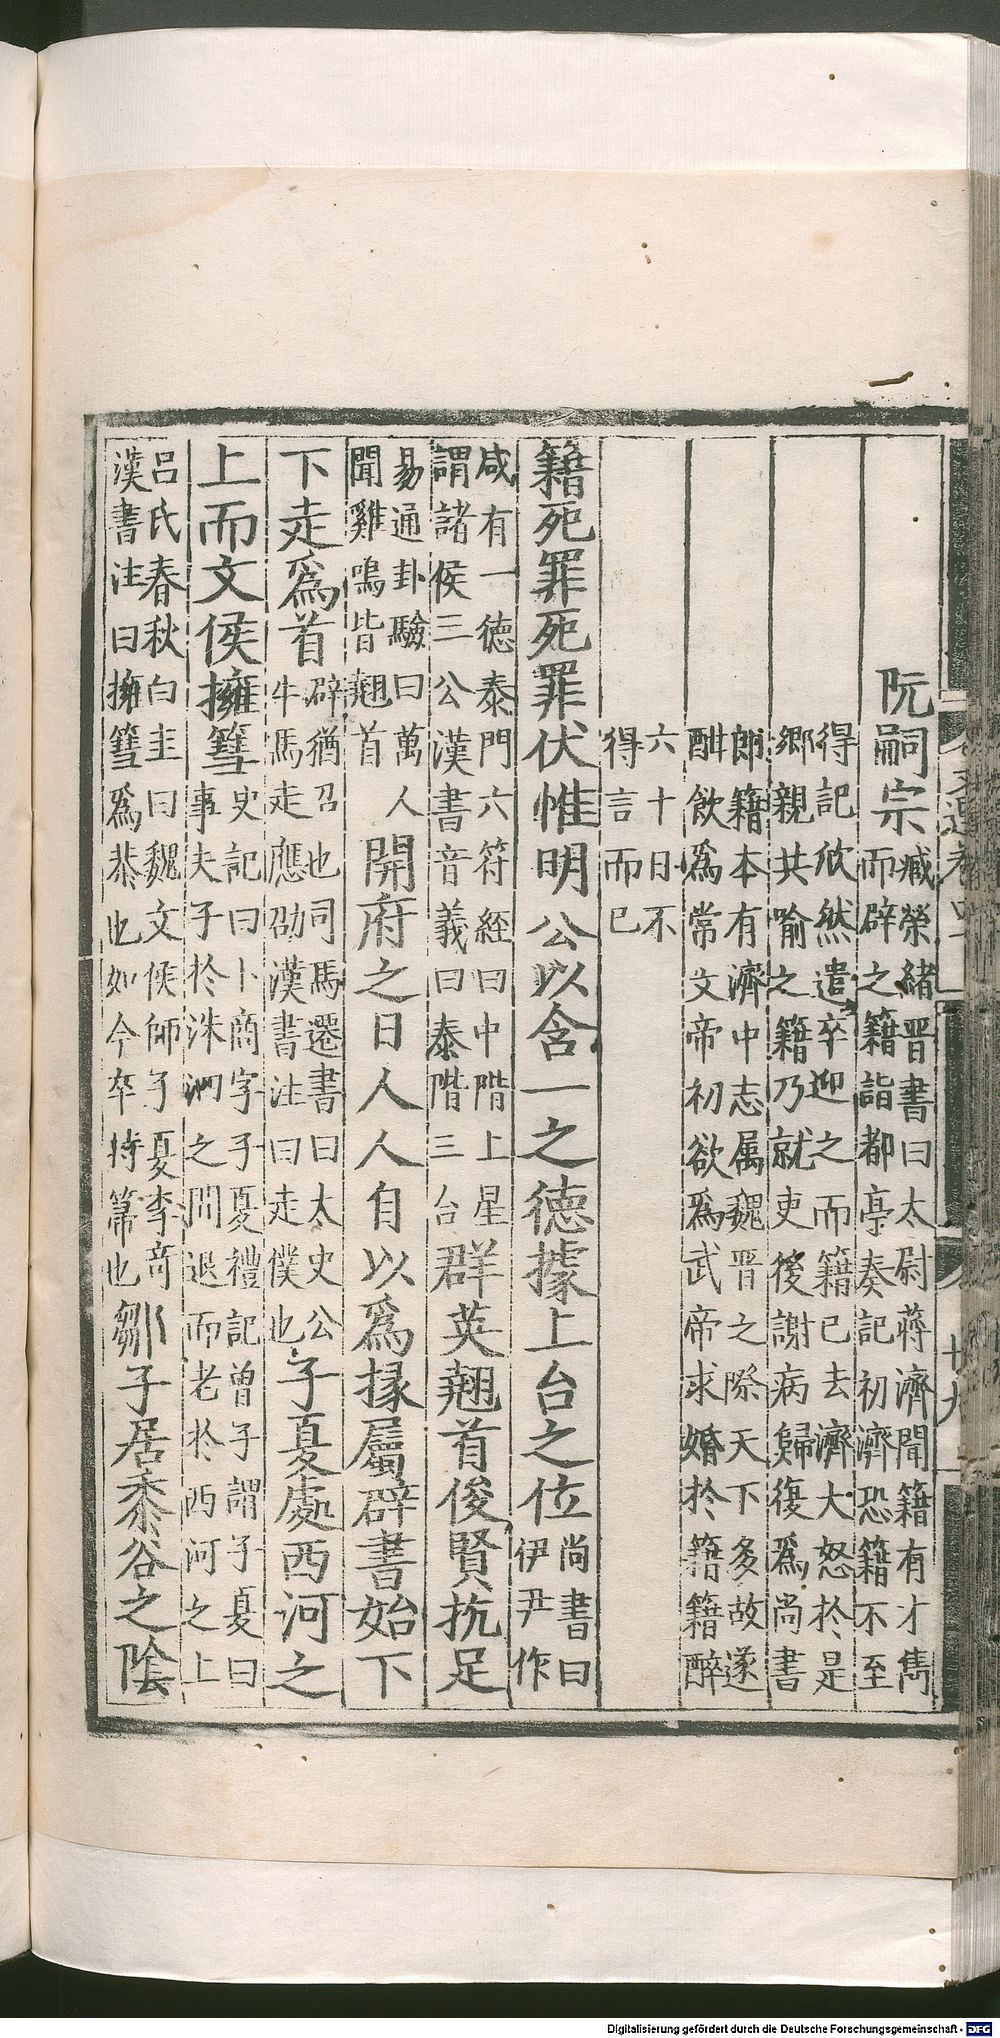 文選卷四十
十九
阮嗣宗
臧榮緒晉書曰太尉蔣濟聞籍有才雋
而辟之籍詣都亭奏記初濟恐籍不至
得記欣然遣卒迎之而籍已去濟大怒於是
鄉親共喻之籍乃就吏後謝病歸復爲尚書
郎籍本有濟中志属魏晉之際天下多故遂
酣飲爲常文帝初欲爲武帝求婚於籍籍醉
六十日不
得言而已
籍死罪死罪伏惟明公以含一之德據上台之位
尚書曰
伊尹作
咸有一德泰門六符經曰中階上星
謂諸侯三公漢書音義曰泰階三台
群英翹首俊賢抗足
易通卦驗曰萬人
聞雞鳴皆翹首
開府之日人人自以爲掾屬辟書始下
下走爲首
辟猶召也司馬遷書曰太史公
牛馬走應劭漢書注曰走僕也
子夏處西河之
上而文侯擁篲
史記曰卜商字子夏禮記曾子謂子夏曰
事夫子於洙泗之間退而老於西河之上
呂氏春秋白圭曰魏文侯師子夏李竒
漢書注曰擁篲爲恭也如今卒持箒也
鄒子居黍谷之陰
Digitalisierung gefördert durch die Deutsche Forschungsgemeinschaft - DFG